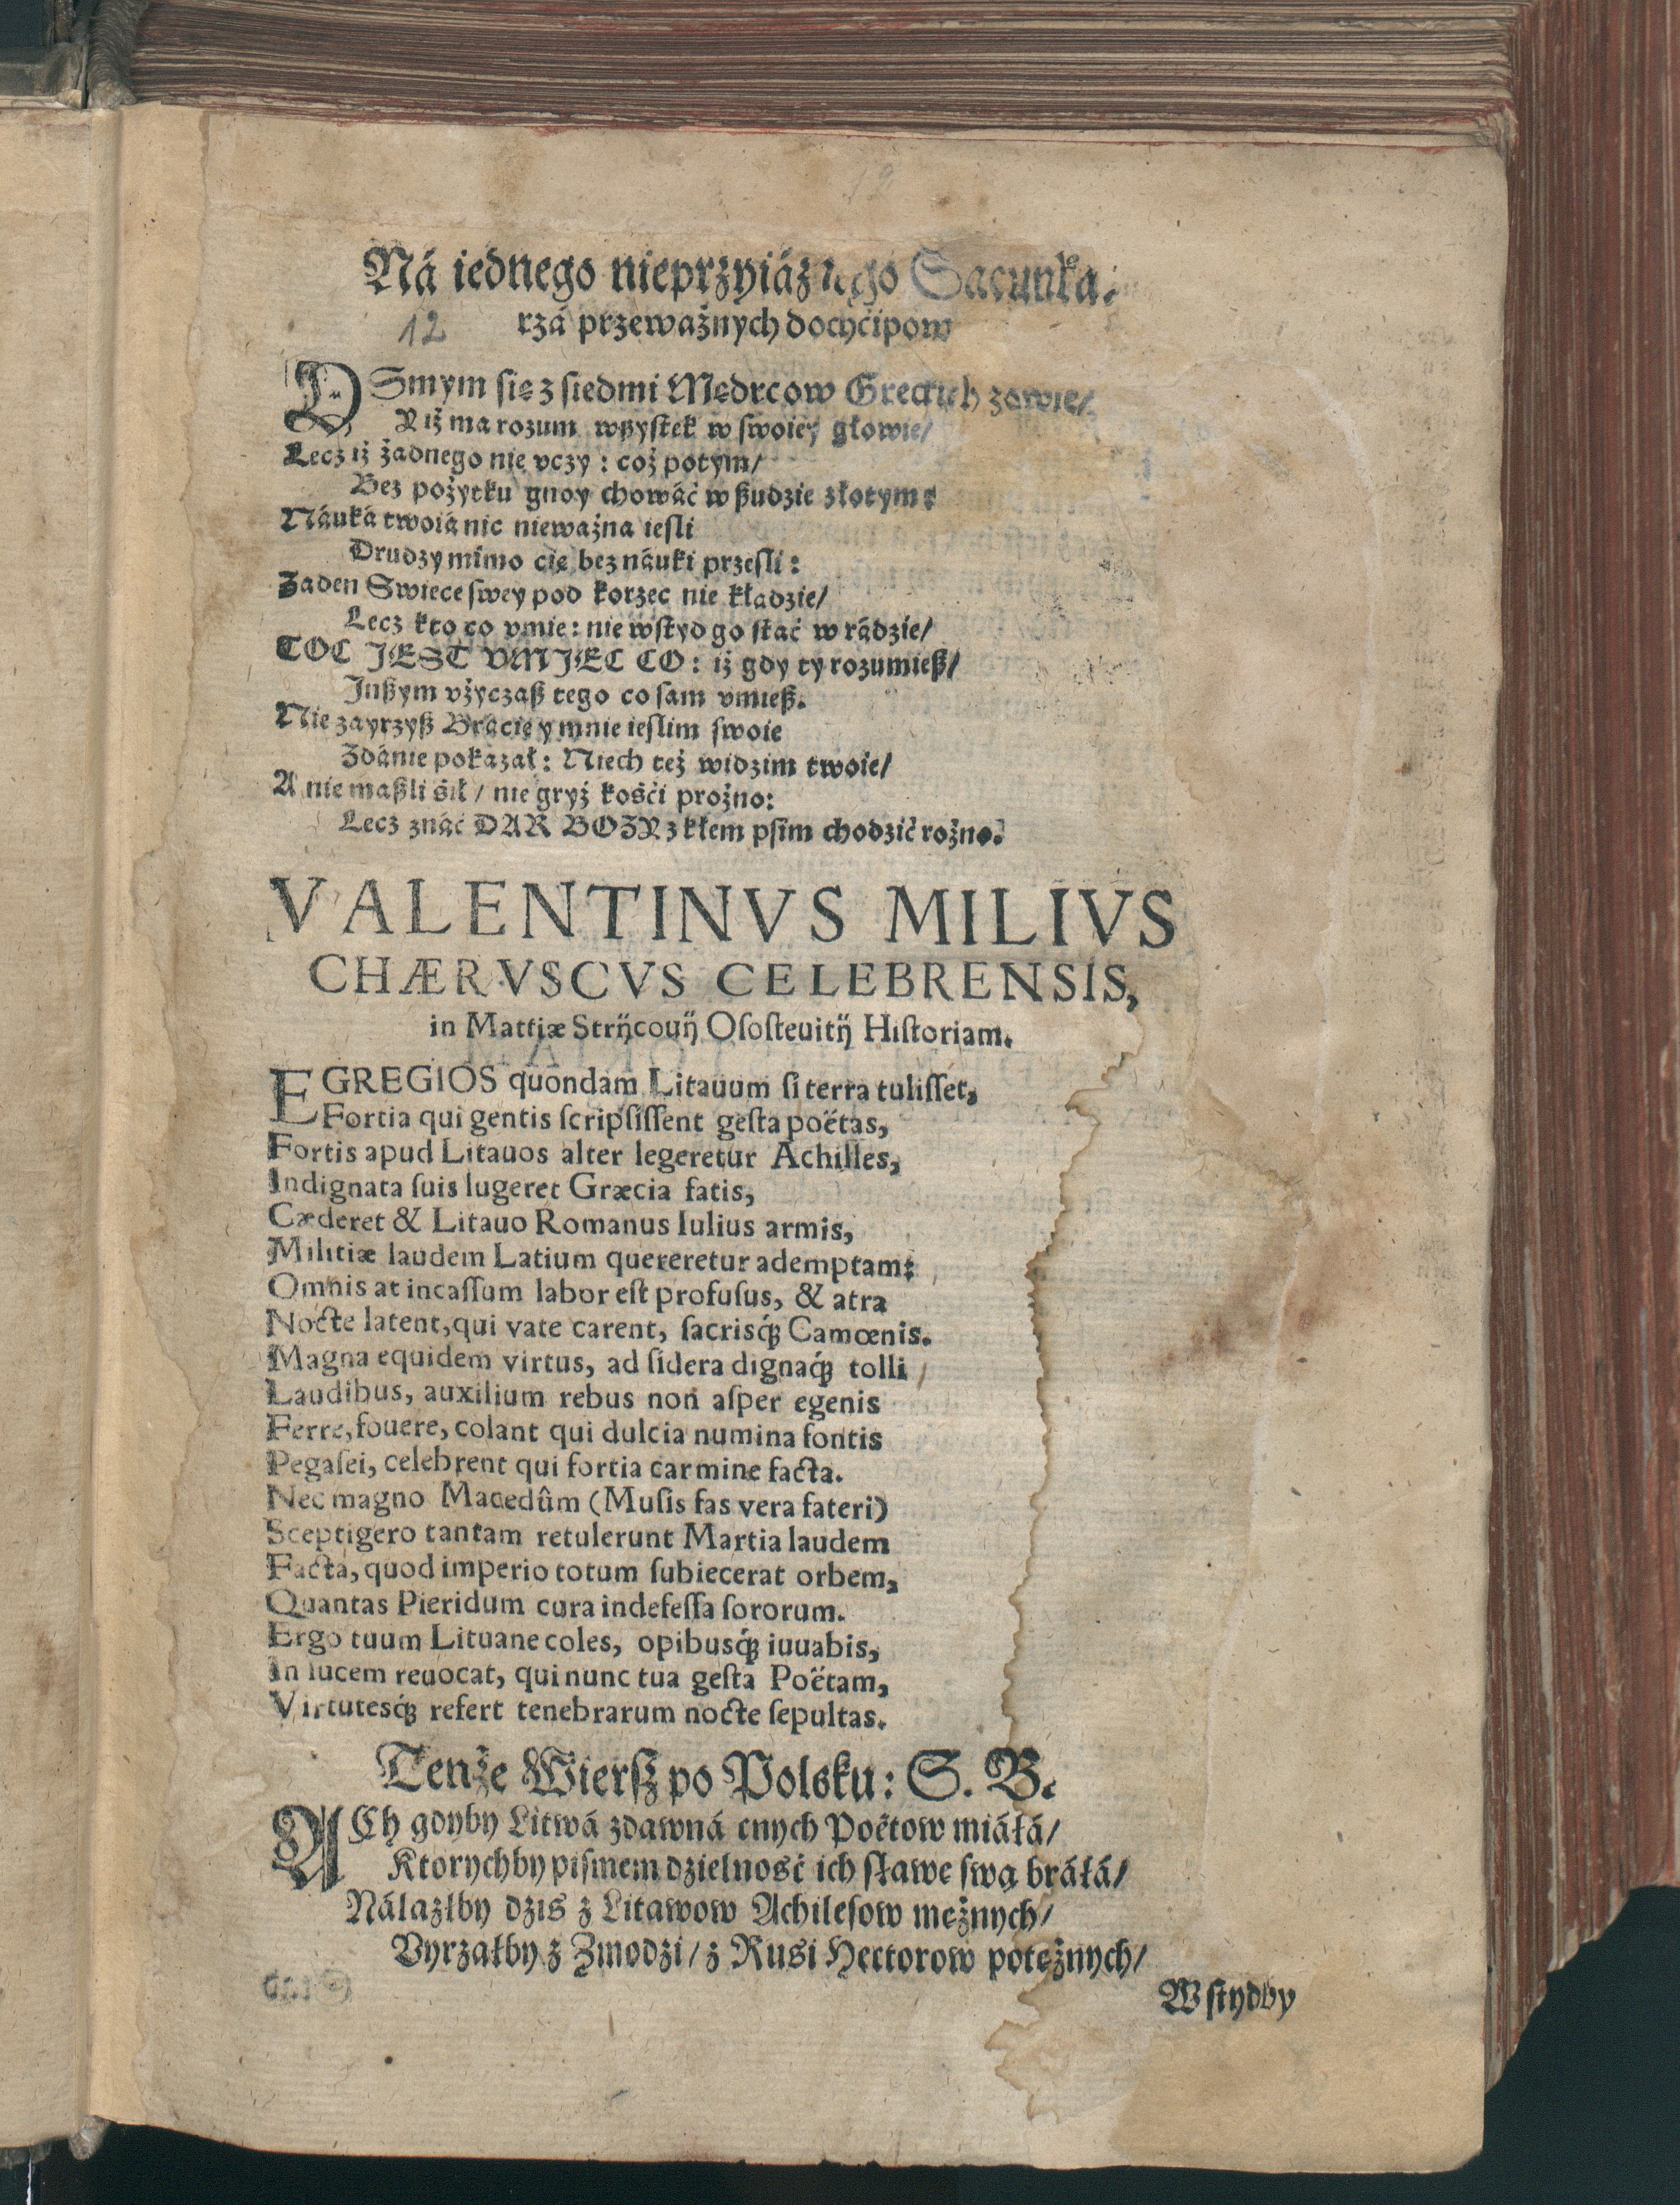 Ná iednego nieprzyiáznego Sacunka-
12 rzá przeważnych dochćipow
OSmym się z siedmi Mędrcow Greckich zowie/
Y iż ma rozum wßystek w swoiey głowie/
Lecz iż żadnego nie vczy : coż potym/
Bez pożytku gnoy chowáć w ßudzie złotym:
Náuká twoiá nic nieważna iesli
Drudzy mimo cię bez náuki przesli :
Zaden Swiece swey pod korzec nie kładzie/
Lecz kto co vmie : nie wstyd go stać w rádzie/
TOC JEST VMJEC CO : iż gdy ty rozumieß/
Jnßym vżyczaß tego co sam vmieß.
Nie zayrzyß Brácię y mnie ieslim swoie
Zdánie pokazał : Niech też widzim twoie/
A nie maßli śił / nie gryź kośći prożno:
Lecz znáć DAR BOZY z kłem psim chodzić rożno.
VALENTINVS MILIVS
CHÆRVSCVS CELEBRENSIS,
in Mattiæ Strÿcouÿ Ososteuitÿ Historiam.
EGREGIOS quondam Litauum si terra tulisset,
Fortia qui gentis scripsissent gesta poëtas,
Fortis apud Litauos alter legeretur Achilles,
Indignata suis lugeret Græcia fatis,
Cæderet & Litauo Romanus Iulius armis,
Militiæ laudem Latium quereretur ademptam:
Omnis at incassum labor est profusus, & atra
Nocte latent, qui vate carent, sacrisq́; Camœnis.
Magna equidem virtus, ad sidera dignaq́; tolli
Laudibus, auxilium rebus non asper egenis
Ferre, fouere, colant qui dulcia numina fontis
Pegasei, celebrent qui fortia carmine facta.
Nec magno Macedûm (Musis fas vera fateri)
Sceptigero tantam retulerunt Martia laudem
Facta, quod imperio totum subiecerat orbem,
Quantas Pieridum cura indefessa sororum.
Ergo tuum Lituane coles, opibusq́; iuuabis,
In lucem reuocat, qui nunc tua gesta Poëtam,
Virtutesq́; refert tenebrarum nocte sepultas.
Tenże Wiersz po Polsku : S. B.
ACh gdyby Litwá zdawná cnych Poëtow miáłá/
Ktorychby pismem dzielność ich sławę swą bráłá/
Nálazłby dzis z Litawow Achilesow mężnych/
Vyrzałby z Zmodzi / z Rusi Hectorow potężnych/
Wstydby